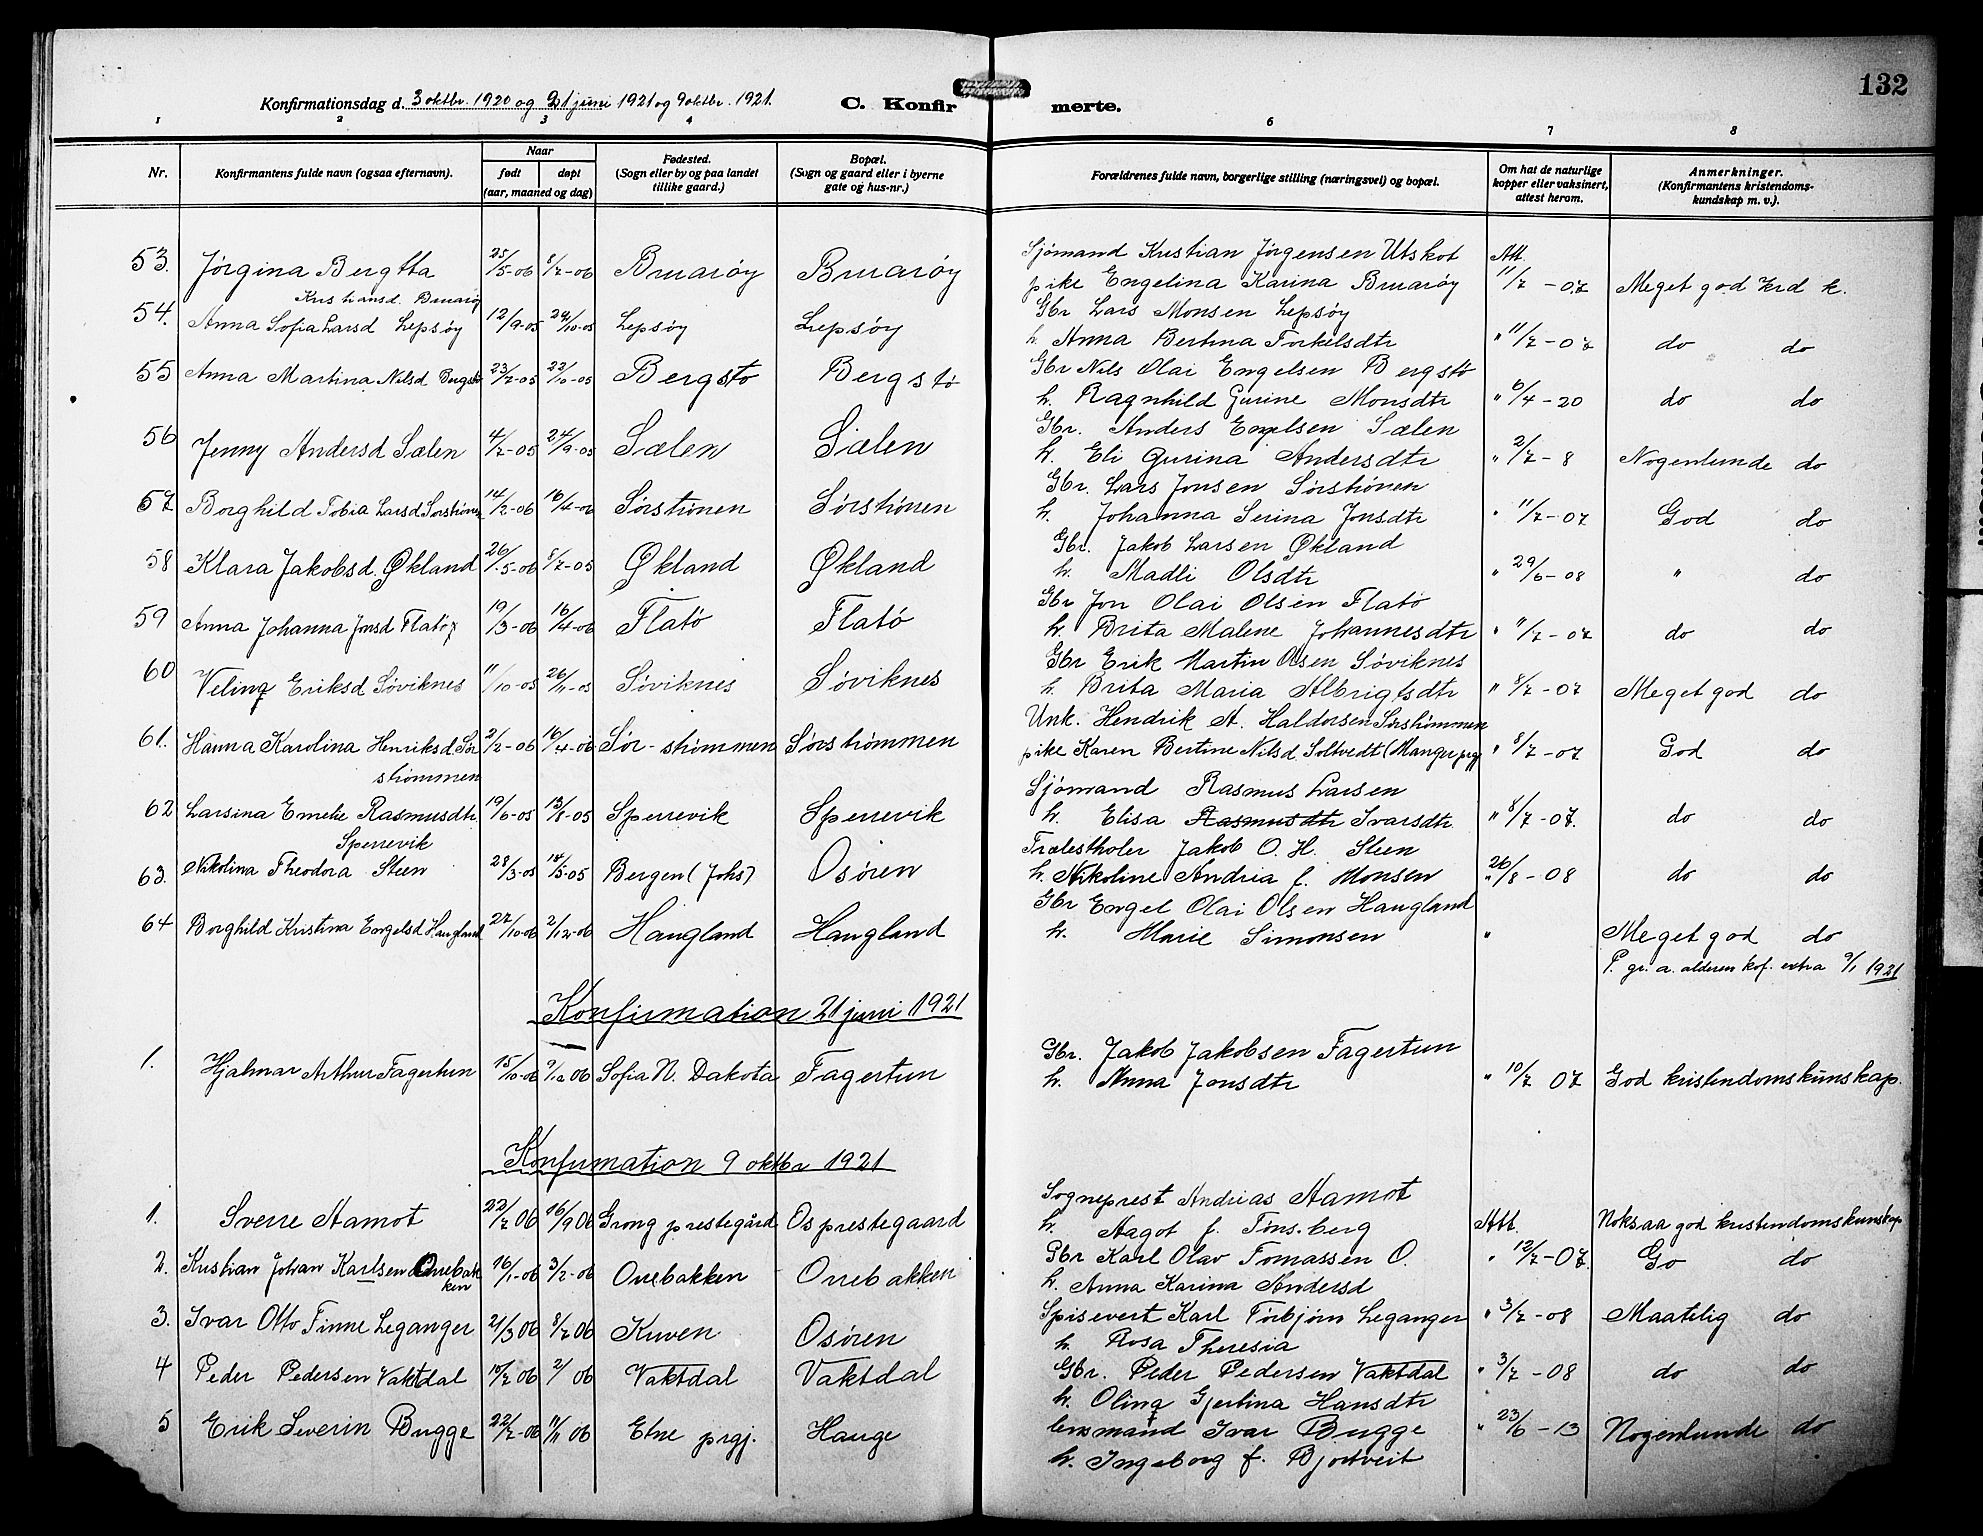 132
Konfirmationsdag d. 3 oktbr. 1920 og 21 juni 1921 og 9 oktbr. 1921. C. Konfirmerte.
1 2 3 4 6 7 8
Nr. Konfirmantens fulde navn (ogsaa efternavn). Naar født døpt (aar, maaned og dag) Fødested. (Sogn eller by og paa landet tillike gaard.) Bopæl. (Sogn og gaard eller i byerne gate og hus-nr.) Forældrenes fulde navn, borgerlige stilling (næringsvei) og bopæl. Om hat de naturlige kopper eller vaksinert, attest herom. Anmerkninger. (Konfirmantens kristendomskundskap m. v.).
53. Jørgina Bergitta 25/5-06 8/7-06 Bruarøy Bruarøy Sjømand Kristian Jørgensen Utskot Att.
Kristiansd. Bruarøy pike Engelina Karina Bruarøy 11/7-07 Meget god krd k.
54. Anna Sofia Larsd Lepsøy 12/9-05 29/10-05 Lepsøy Lepsøy Gbr Lars Monsen Lepsøy
h. Anna Bertina Torkilsdtr " 11/7-07 do do
55 Anna Martina Nilsd Bergstø 23/7-05 22/10-05 Bergstø Bergstø Gbr Nils Olai Engelsen Bergstø
h. Ragnhild Gurine Monsdtr " 6/4-20 do do
56 Jenny Andersd Sælen 4/7-05 24/9-05 Sælen Sælen Gbr. Anders Engelsen Sælen
h. Eli Gurina Andersdtr " 2/7-8 Nogenlunde do
57 Borghild Tobia Larsd Sørstrønen 14/2-06 16/4-06 Sørstrønen Sørstrønen Gbr. Lars Jonsen Sørstrønen
h. Johanna Serina Jonsdtr " 11/7-07 God do
58 Klara Jakobsd. Økland 26/5-06 8/7-05 Økland Økland Gbr. Jakob Larsen Økland
h. Madli Olsdtr " 29/6-08 " do
59 Anna Johanna Jonsd Flatø 19/3-06 16/4-06 Flatø Flatø Gbr Jon Olai Olsen Flatø
h. Brita Malene Johannesdtr " 11/7-07 do do
60 Velina Eriksd Søviknes 11/10-05 26/11-05 Søviknes Søviknes Gbr Erik Martin Olsen Søviknes
h. Brita Maria Albrigtsdtr " 8/7-07 Meget god do
61. Hanna Karolina Henriksd. Sør 2/2-06 16/4-06 Sør-strømmen Sørstrømmen Unk. Hendrik A. Haldorsen Sørstrømmen
strømmen pike Karen Bertine Nilsd. Soltvedt (Manger prgj " 8/7-07 God do
62 Larsina Emelie Rasmusdtr 19/6-05 13/8-05 Sperrevik Sperrevik Sjømand Rasmus Larsen
Sperrevik h. Elisa Rasmusdtr Ivarsdtr " 8/7-07. do do
63. Nikolina Theodora Steen 28/3-05 18/5-05 Bergen (Johs) Osøren Trælestholer Jakob O. H. Steen
h. Nikoline Andrea f. Monsen " 26/8-08 do do
64 Borghild Kristina Engelsd Haugland 27/10-06 2/12-06 Haugland Haugland Gbr Engel Olai Olsen Haugland
h. Marie Simonsen " Meget god do
P. gr. a. alderen kof. extra 9/1 1921
Konfirmation 21 juni 1921
1. Hjalmar Arthur Fagertun 15/10-06 9/12 06 Sofia N. Dakota Fagertun Gbr. Jakob Jakobsen Fagertun
h. Anna Jonsdtr " 10/7 07 God kristendomskunskap.
Konfirmation 9 oktbr 1921
1. Sverre Aamot 22/7 06 16/9 06 Grong prestegård Os prestegaard Sogneprest Andreas Aamot
h. Aagot f. Tønsberg Att. Noksaa god kristendomskunskap
2. Kristian Johan Karlsen Orrebakken 16/1-06 3/2-06 Orrebakken Orrebakken Gbr Karl Olav Tomassen O. " 12/7-07 Go do
h. Anna Karina Andersd
3. Ivar Otto Finne Leganger 21/3 06 8/7 06 Kuven Osøren Spisevert Karl Torbjørn Leganger " 3/7-08 Maatelig do
h Rosa Theresia
4 Peder Pedersen Vaktdal 10/7 06 2/ 06 Vaktdal Vaktdal Gbr. Peder Pedersen Vaktdal " 3/7-08 do do
h. Olina Gjertina Hansdtr
5 Erik Severin Bugge 22/7-06 11/11 06 Etne prgj. Hauge lensmand Ivar Bugge " 23/6-13 Nogenlunde do
h. Ingeborg f. Bjortveit